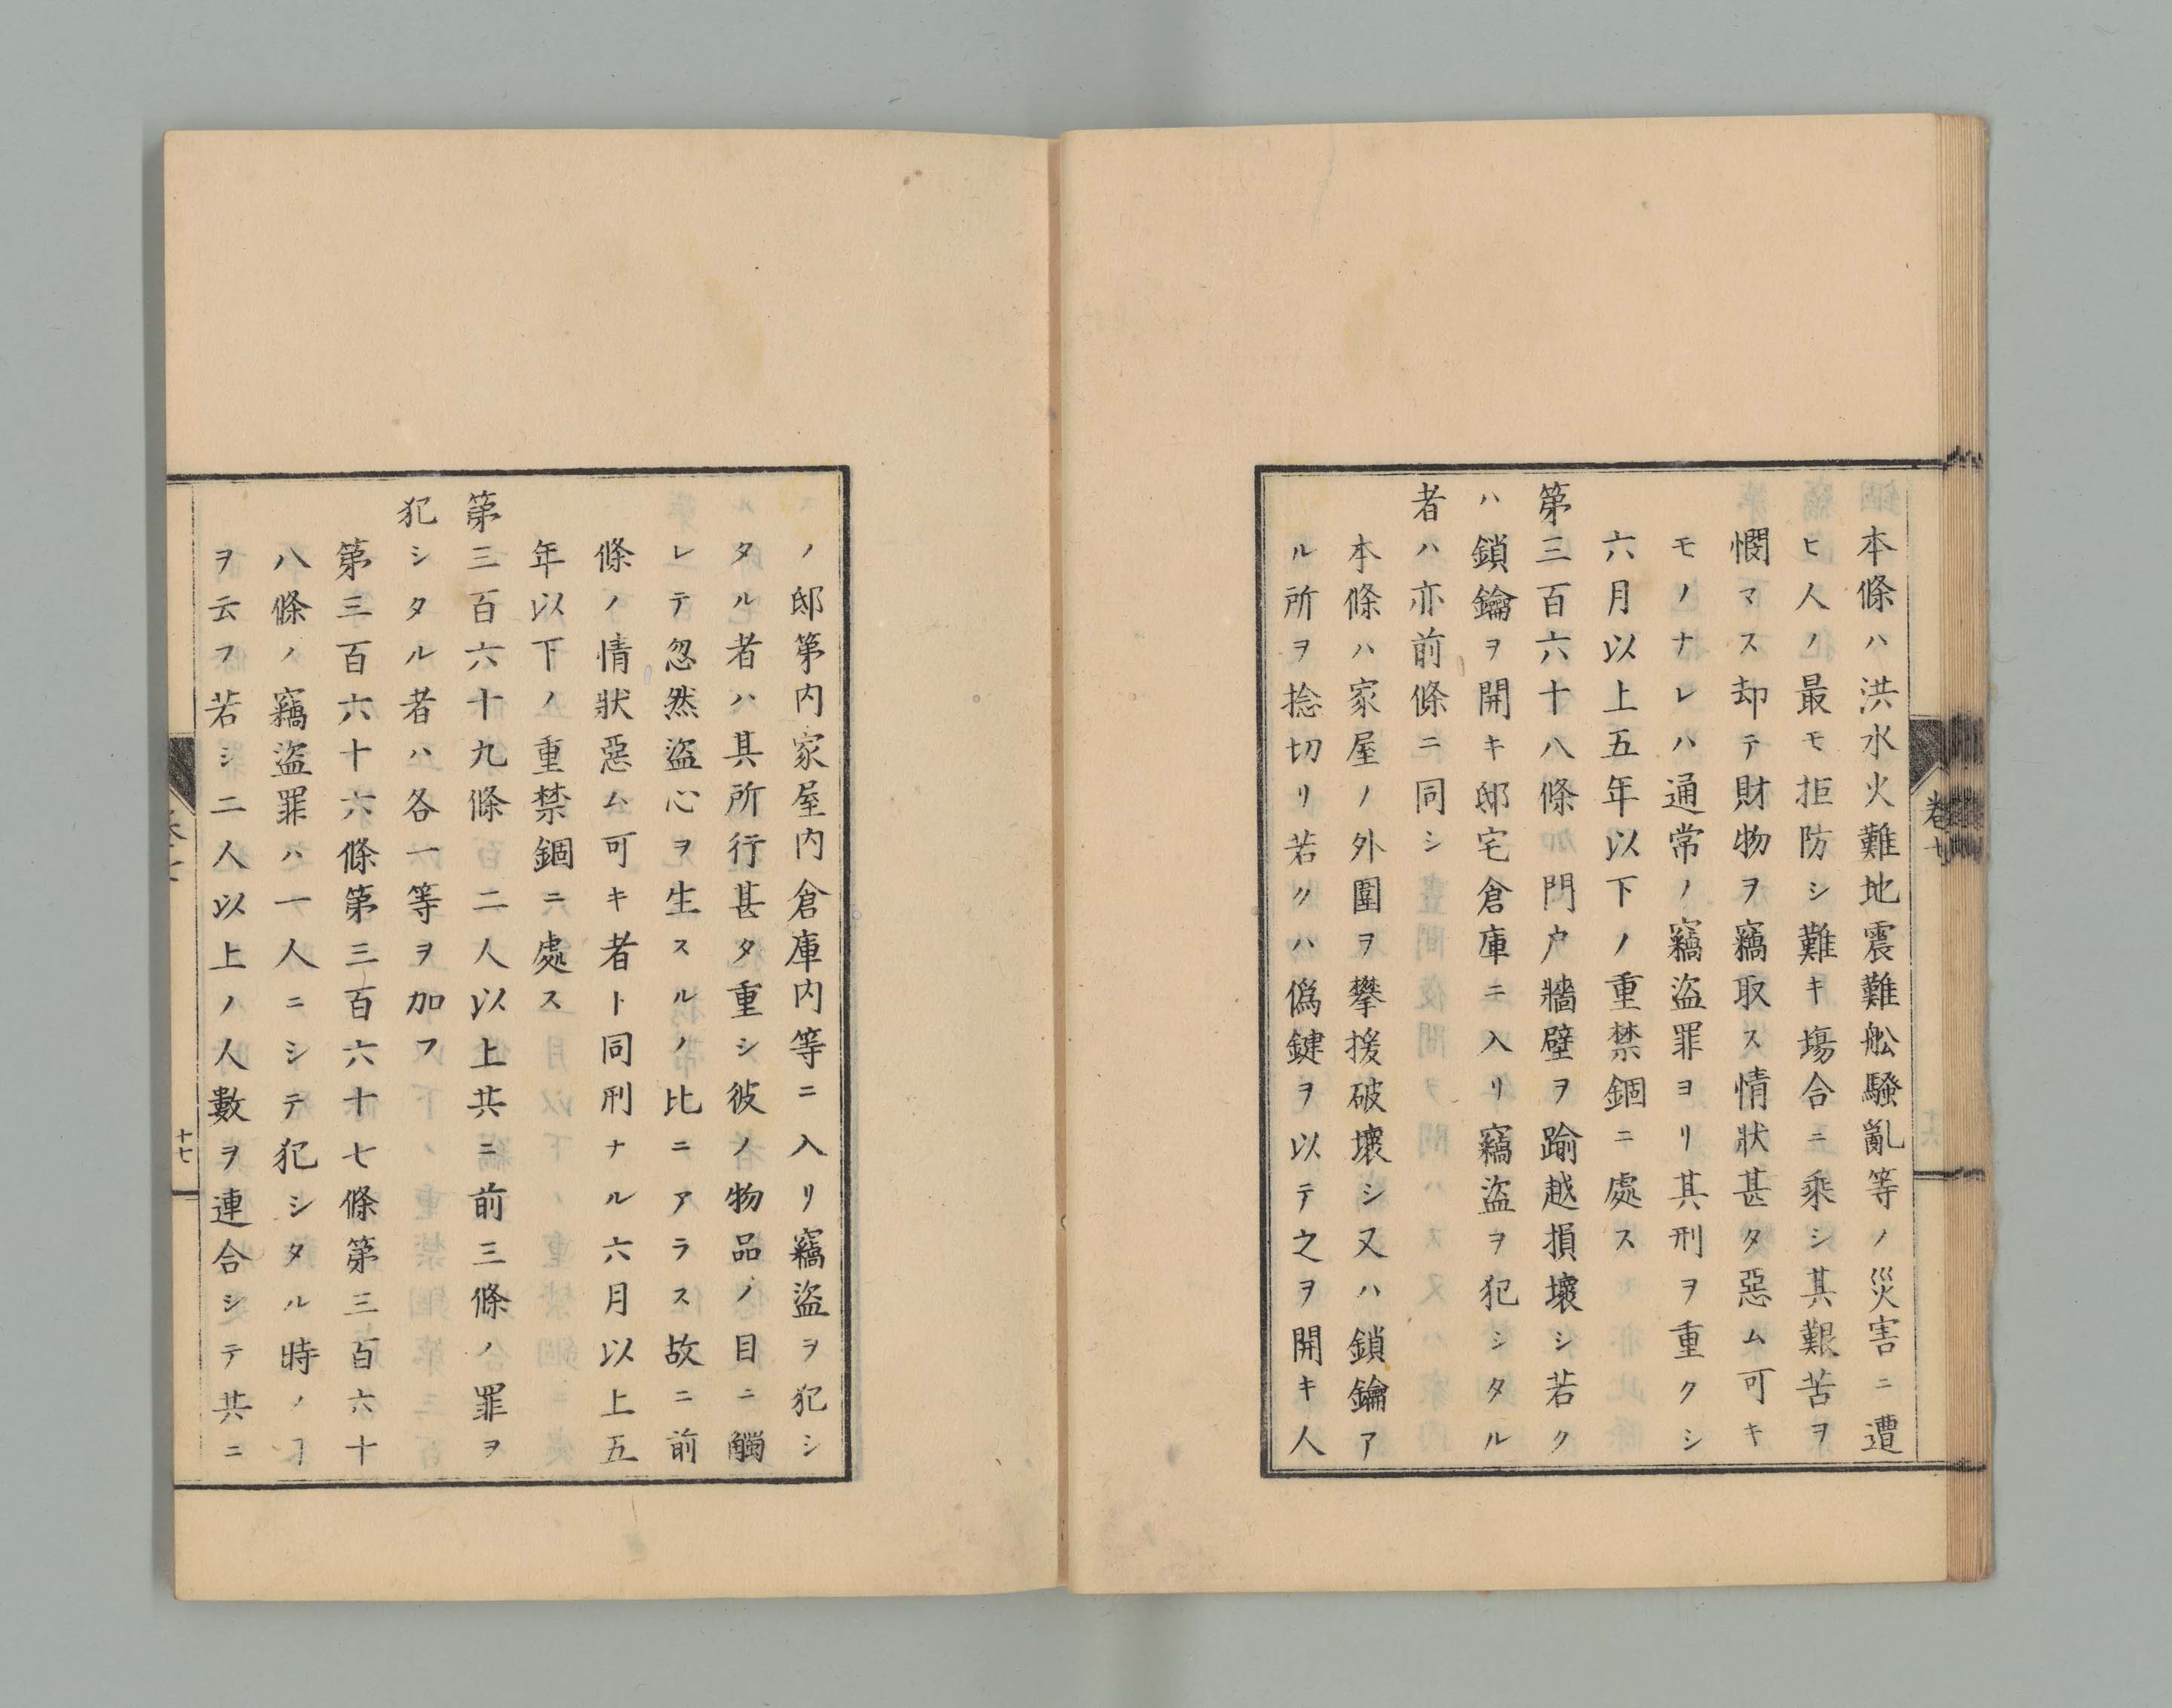 本條ハ洪水火難地震難舩騷亂等ノ災害ニ遭
ヒ人ノ最モ拒防シ難キ塲合ニ乘シ其艱苦ヲ
憫マス却テ財物ヲ竊取ス情狀甚タ惡ム可キ
モノナレハ通常ノ竊盜罪ヨリ其刑ヲ重クシ
六月以上五年以下ノ重禁錮ニ處ス
第三百六十八條門戸牆壁ヲ踰越損壞シ若ク
ハ鎖鑰ヲ開キ邸宅倉庫ニ入リ竊盜ヲ犯シタル
者ハ亦前條ニ同シ
本條ハ家屋ノ外圍ヲ攀援破壞シ又ハ鎖鑰ア
ル所ヲ捻切リ若クハ僞鍵ヲ以テ之ヲ開キ人
ノ邸第内家屋内倉庫内等ニ入リ竊盜ヲ犯シ
タル者ハ其所行甚タ重シ彼ノ物品ノ目ニ觸
レテ忽然盜心ヲ生スルノ比ニアラス故ニ前
條ノ情狀惡ム可キ者ト同刑ナル六月以上五
年以下ノ重禁錮ニ處ス
第三百六十九條二人以上共ニ前三條ノ罪ヲ
犯シタル者ハ各一等ヲ加フ
第三百六十六條第三百六十七條第三百六十
八條ノ竊盜罪ハ一人ニシテ犯シタル時ノヿ
ヲ云フ若シ二人以上ノ人數ヲ連合シテ共ニ
十七